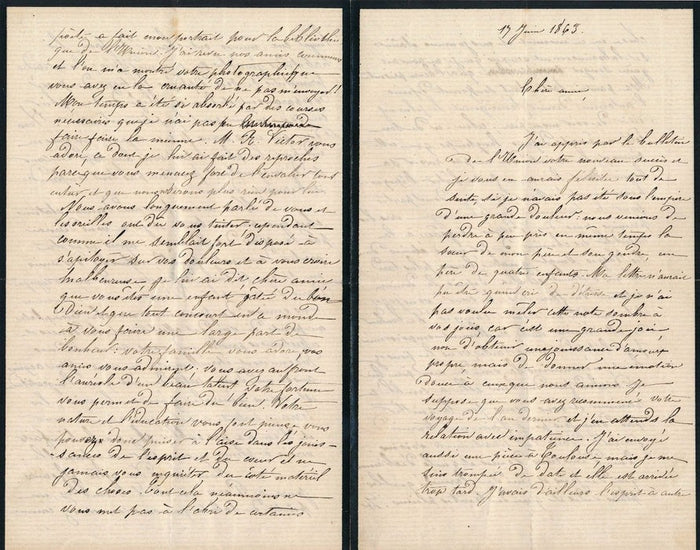 17 Juin 1863.
Chère amie,
J'ai appris par le bulletin
de l'Union votre nouveau succès et
je vous en aurais félicité tout de
suite, si je n'avais pas été sous l'empire
d'une grande douleur: nous venions de
perdre à peu près en même temps la
sœur de mon père et son gendre, un
père de quatre enfants. Ma lettre n'aurait
pu être qu'un cri de détresse et je n'ai
pas voulu mêler cette note sombre à
vos joies, car est une grande joie
non d'obtenir une jouissance d'amour
propre mais de donner une émotion
douce à ceux que nous aimons. Je
suppose que vous avez recommencé votre
voyage de l'an dernier et j'en attends la
relation avec impatience. J'ai envoyé
aussi une pièce à Toulouse mais je me
suis trompée de date et elle est arrivée
trop tard. J'avais d'ailleurs l'esprit à autre
poète a fait mon portrait pour la bibliothè
que de l'Union. J'ai revu nos amis communs
et l'on m'a montré votre photographie que
vous avez eu la cruauté de ne pas m'envoyer!
Mon temps a été si absorbé par des courses
nécessaires que je n'ai pas pu
faire faire la mienne. M. R. Victor vous
adore, ce dont je lui ai fait des reproches
parce que vous menacez fort de l'envahir tout
entier, et que nous ne serons plus rien pour lui.
Nous avons longuement parlé de vous et
les oreilles ont dû vous tinter. cependant
comme il me semblait fort disposé à
s'apitoyer sur vos douleurs et à vous croire
malheureuse je lui ai dit chère amie
que vous êtes une enfant gâtée du bon
Dieu et que tout concourt en ce monde
à vous faire une large part de
bonheur: votre famille vous adore, vos
amis vous admirent, vous avez au front
l'auréole d'un beau talent votre fortune
vous permet de faire du bien. Votre
nature et l'éducation vous font penser vous
pouvez donc puiser à l'aise dans les jouis-
sances de l'esprit et du cœur et ne
jamais vous inquiéter du côté matériel
des choses. Tout cela néanmoins ne
vous met pas à l'abri de certaines